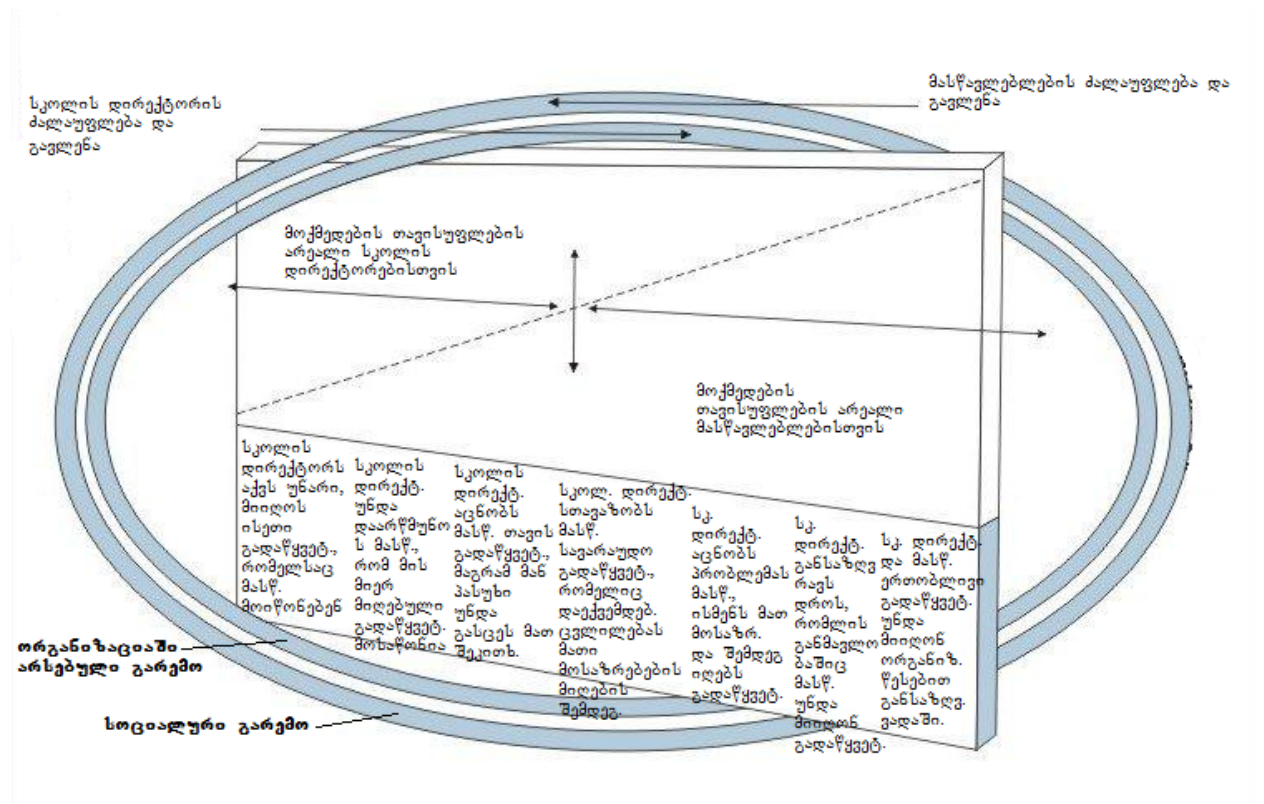 სკოლის დირექტორის
ძალაუფლება და
გავლენა
მასწავლებლების ძალაუფლება და
გავლენა
მოქმედების თავისუფლების
არეალი სკოლის
დირექტორებისთვის
მოქმედების
თავისუფლების არეალი
მასწავლებლებისთვის
სკოლის
დირექტორს
აქვს უნარი,
მიიღოს
ისეთი
გადაწყვეტ.,
რომელსაც
მასწ.
მოიწონებენ
სკოლის
დირექტ.
უნდა
დაარწმუნო
ს მასწ.,
რომ მის
მიერ
მიღებული
გადაწყვეტ.
მოსაწონია
სკოლის
დირექტ.
აცნობს
მასწ. თავის
გადაწყვეტ.,
მაგრამ მან
პასუხი
უნდა
გასცეს მათ
შეკითხ.
სკოლ. დირექტ.
სთავაზობს
მასწ.
სავარაუდო
გადაწყვეტ.,
რომელიც
დაექვემდებ.
ცვლილებას
მათი
მოსაზრებების
მიღების
შემდეგ.
სკ.
დირექტ.
აცნობს
პრობლემას
მასწ.,
ისმენს მათ
მოსაზრ.
და შემდეგ
იღებს
გადაწყვეტ.
სკ.
დირექტ.
განსაზღვ
რავს
დროს,
რომლის
განმავლო
ბაშიც
მასწ.
უნდა
მიიღონ
გადაწყვეტ.
სკ. დირექტ.
და მასწ.
ერთობლივი
გადაწყვეტ.
უნდა
მიიღონ
ორგანიზ.
წესებით
განსაზღვ.
ვადაში.
ორგანიზაციაში
არსებული გარემო
სოციალური გარემო